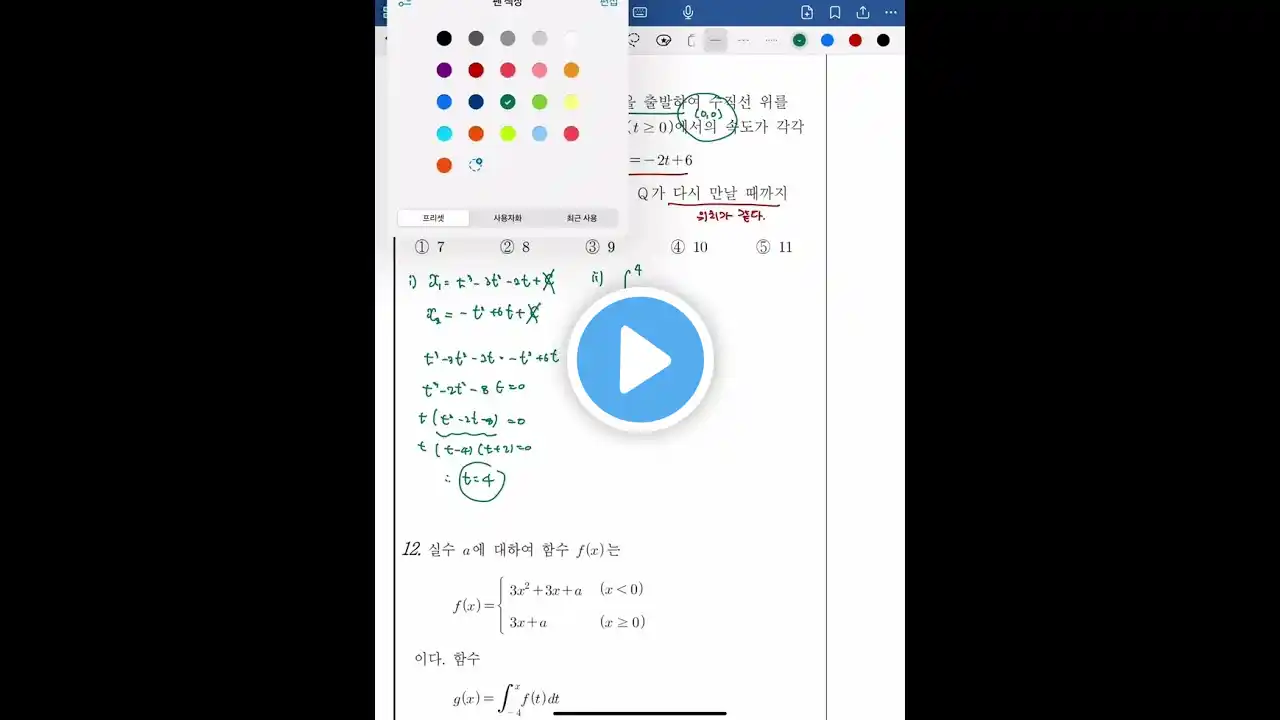 펜 색상
편집
프리셋 사용자화 최근 사용
을 출발하여 수직선 위를
(0,0)
(t≥0)에서의 속도가 각각
=-2t+6
Q가 다시 만날 때까지
위치가 같다.
① 7 ② 8 ③ 9 ④ 10 ⑤ 11
i) x₁= t³-3t²-2t+C
ii) ∫⁴
x₂ = -t²+6t+C
t³-3t²-2t = -t²+6t
t³-2t²-8t=0
t(t²-2t-8)=0
t(t-4)(t+2)=0
∴ t=4
12. 실수 a에 대하여 함수 f(x)는
f(x)={ 3x²+3x+a (x<0)
3x+a (x≥0)
이다. 함수
g(x)=∫₋₄ˣ f(t)dt